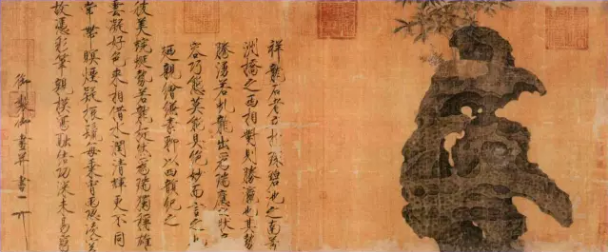 祥龍石者立於環碧池之南芳
洲橋之西相對則勝瀛也其勢
騰湧若虯龍出為瑞應之狀奇
容巧態莫能具絕妙而言之也
廼親繪縑素聊以四韻紀之
彼美蜿蜒勢若龍挺然為瑞獨稱雄
雲凝好色來相借水潤清輝更不同
常帶瞑煙疑振鬣每乘宵雨恐凌空
故憑彩筆親模寫融結功深未易窮
御製御畫并書